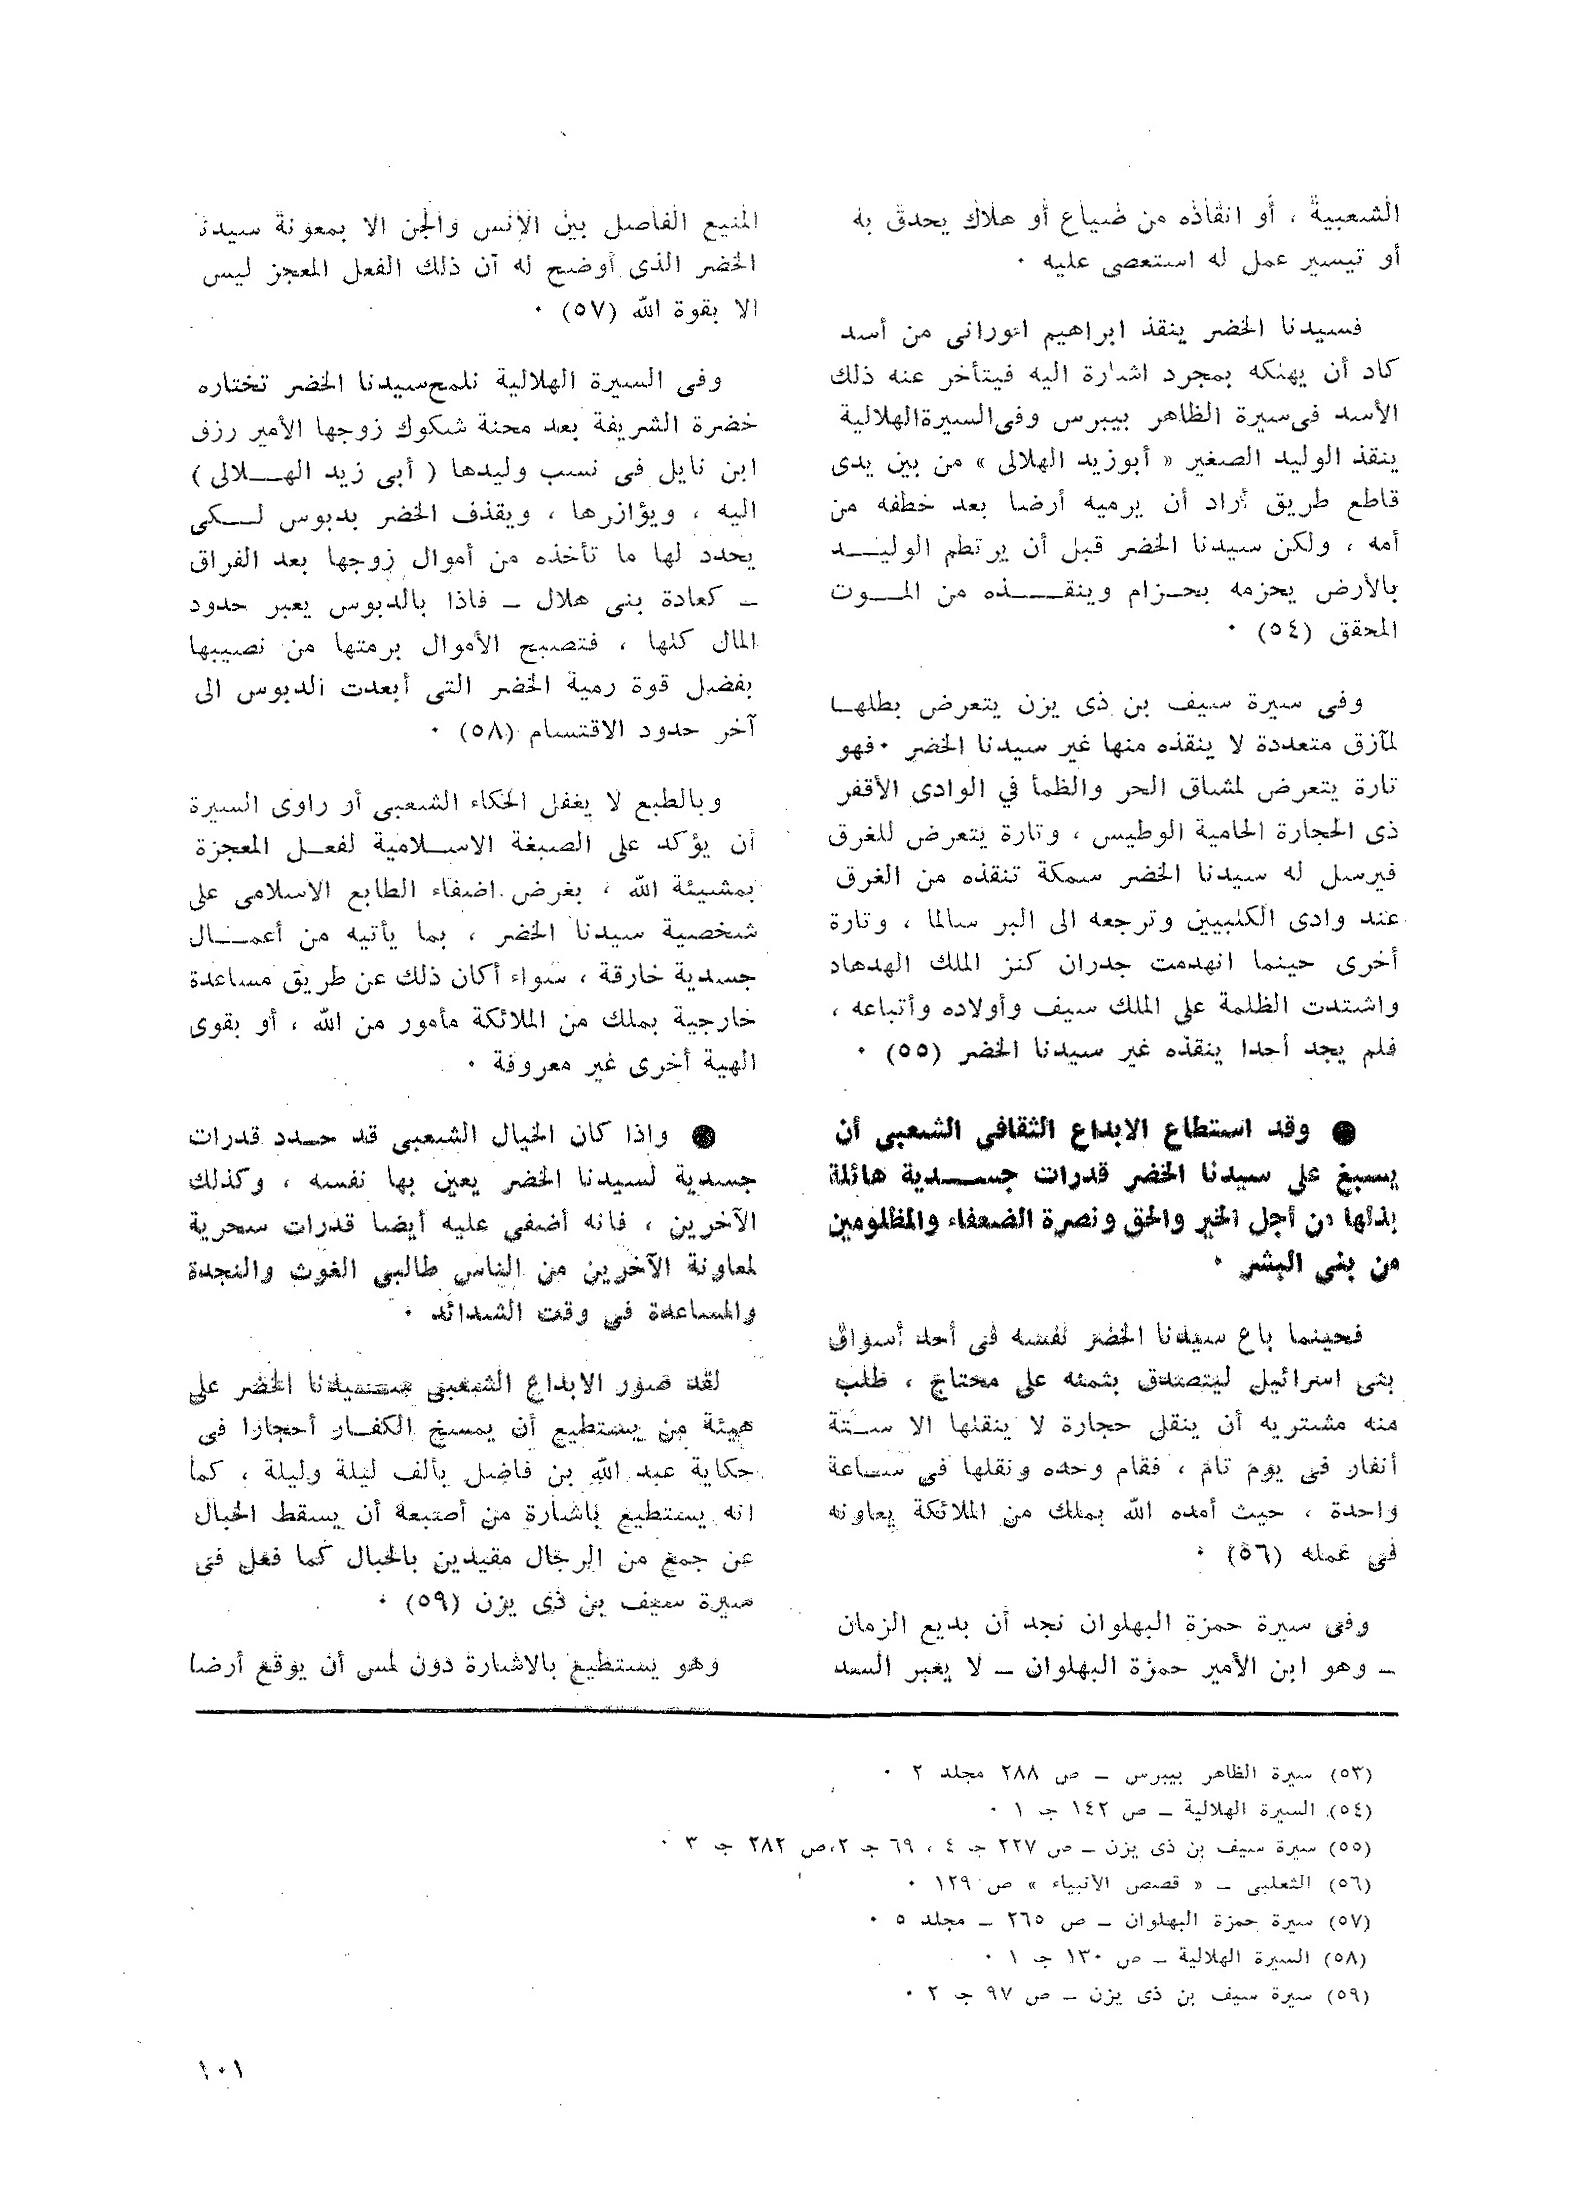 الشعبية ، أو انقاذه من ضياع أو هلاك يحدق به
أو تيسير عمل له استعصى عليه .
فسيدنا الخضر ينقذ ابراهيم الورانى من أسد
كاد أن يهلكه بمجرد اشارة اليه فيتأخر عنه ذلك
الأسد فى سيرة الظاهر بيبرس وفى السيرة الهلالية
ينقذ الوليد الصغير « أبوزيد الهلالى » من بين يدى
قاطع طريق أراد أن يرميه أرضا بعد خطفه من
أمه ، ولكن سيدنا الخضر قبل أن يرتطم الوليـــد
بالأرض يحزمه بحـزام وينقـــذه من المـــوت
المحقق (٥٤) .
وفى سيرة سيف بن ذى يزن يتعرض بطلهـا
لمآزق متعددة لا ينقذه منها غير سيدنا الخضر . فهو
تارة يتعرض لمشاق الحر والظمأ في الوادى الأقفر
ذى الحجارة الحامية الوطيس ، وتارة يتعرض للغرق
فيرسل له سيدنا الخضر سمكة تنقذه من الغرق
عند وادى الكلبيين وترجعه الى البر سالما ، وتارة
أخرى حينما انهدمت جدران كنز الملك الهدهاد
واشتدت الظلمة على الملك سيف وأولاده وأتباعه ،
فلم يجد أحدا ينقذه غير سيدنا الخضر (٥٥) .
● وقد استطاع الابداع الثقافى الشعبى أن
يسبغ على سيدنا الخضر قدرات جســـدية هائلة
بذلها من أجل الخير والحق ونصرة الضعفاء والمظلومين
من بنى البشر .
فحينما باع سيدنا الخضر نفسه فى أحد أسواق
بنى اسرائيل ليتصدق بثمنه على محتاج ، طلب
منه مشتريه أن ينقل حجارة لا ينقلها الا ســتة
أنفار فى يوم تام ، فقام وحده ونقلها فى ساعة
واحدة ، حيث أمده الله بملك من الملائكة يعاونه
فى عمله (٥٦) .
وفى سيرة حمزة البهلوان نجد أن بديع الزمان
ــ وهو ابن الأمير حمزة البهلوان ــ لا يعبر السد
المنيع الفاصل بين الإنس والجن الا بمعونة سيدنا
الخضر الذى أوضح له أن ذلك الفعل المعجز ليس
الا بقوة الله (٥٧) .
وفى السيرة الهلالية نلمح سيدنا الخضر تختاره
خضرة الشريفة بعد محنة شكوك زوجها الأمير رزق
ابن نايل فى نسب وليدها ( أبى زيد الهـــلالى )
اليه ، ويؤازرها ، ويقذف الخضر بدبوس لـــكى
يحدد لها ما تأخذه من أموال زوجها بعد الفراق
ــ كعادة بنى هلال ــ فاذا بالدبوس يعبر حدود
المال كلها ، فتصبح الأموال برمتها من نصيبها
بفضل قوة رمية الخضر التى أبعدت الدبوس الى
آخر حدود الاقتسام (٥٨) .
وبالطبع لا يغفل الحكاء الشعبى أو راوى السيرة
أن يؤكد على الصبغة الاســلامية لفعــل المعجزة
بمشيئة الله ، بغرض اضفاء الطابع الاسلامى على
شخصية سيدنا الخضر ، بما يأتيه من أعمـــال
جسدية خارقة ، سواء أكان ذلك عن طريق مساعدة
خارجية بملك من الملائكة مأمور من الله ، أو بقوى
الهية أخرى غير معروفة .
● واذا كان الخيال الشعبى قد حــدد قدرات
جسدية لسيدنا الخضر يعين بها نفسه ، وكذلك
الآخرين ، فانه أضفى عليه أيضا قدرات سحرية
لمعاونة الآخرين من الناس طالبى الغوث والنجدة
والمساعدة فى وقت الشدائد .
لقد صور الابداع الشعبى ســيدنا الخضر على
هيئة من يستطيع أن يمسخ الكفــار أحجارا فى
حكاية عبد الله بن فاضل بألف ليلة وليلة ، كما
انه يستطيع باشارة من أصبعه أن يسقط الحبال
عن جمع من الرجال مقيدين بالحبال كما فعل فى
سيرة سيف بن ذى يزن (٥٩) .
وهو يستطيع بالاشارة دون لمس أن يوقع أرضا
(٥٣) سيرة الظاهر بيبرس ــ ص ٢٨٨ مجلد ٢ .
(٥٤) السيرة الهلالية ــ ص ١٤٢ جـ ١ .
(٥٥) سيرة سيف بن ذى يزن ــ ص ٢٢٧ جـ ٤ ، ٦٩ جـ ٢، ص ٢٨٢ جـ ٣ .
(٥٦) الثعلبى ــ « قصص الأنبياء » ص ١٢٩ .
(٥٧) سيرة حمزة البهلوان ــ ص ٢٦٥ ــ مجلد ٥ .
(٥٨) السيرة الهلالية ــ ص ١٣٠ جـ ١ .
(٥٩) سيرة سيف بن ذى يزن ــ ص ٩٧ جـ ٢ .
١٠١